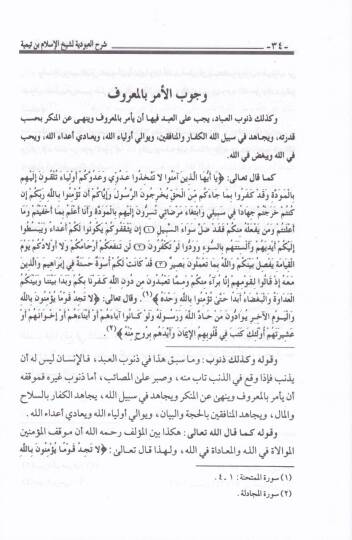 -٣٤- شرح العبودية لشيخ الإسلام بن تيمية
وجوب الأمر بالمعروف
وكذلك ذنوب العباد، يجب على العبد فيها أن يأمر بالمعروف وينهى عن المنكر بحسب
قدرته، ويجاهد في سبيل الله الكفار والمنافقين، ويوالي أولياء الله، ويعادي أعداء الله، ويحب
في الله ويبغض في الله.
كما قال تعالى: ﴿يا أيها الذين آمنوا لا تتخذوا عدوي وعدوكم أولياء تلقون إليهم
بالمودة وقد كفروا بما جاءكم من الحق يخرجون الرسول وإياكم أن تؤمنوا بالله ربكم إن
كنتم خرجتم جهادا في سبيلي وابتغاء مرضاتي تسرون إليهم بالمودة وأنا أعلم بما أخفيتم وما
أعلنتم ومن يفعله منكم فقد ضل سواء السبيل (١) إن يثقفوكم يكونوا لكم أعداء ويبسطوا
إليكم أيديهم وألسنتهم بالسوء وودوا لو تكفرون (٢) لن تنفعكم أرحامكم ولا أولادكم يوم
القيامة يفصل بينكم والله بما تعملون بصير (٣) قد كانت لكم أسوة حسنة في إبراهيم والذين
معه إذ قالوا لقومهم إنا برآء منكم ومما تعبدون من دون الله كفرنا بكم وبدا بيننا وبينكم
العداوة والبغضاء أبدا حتى تؤمنوا بالله وحده﴾(١). وقال تعالى: ﴿لا تجد قوما يؤمنون بالله
واليوم الآخر يوادون من حاد الله ورسوله ولو كانوا آباءهم أو أبناءهم أو إخوانهم أو
عشيرتهم أولئك كتب في قلوبهم الإيمان وأيدهم بروح منه﴾(٢).
وقوله وكذلك ذنوب: وما سبق هذا في ذنوب العبد، فالإنسان ليس له أن
يذنب فإذا وقع في الذنب تاب منه، وصبر على المصائب، أما ذنوب غيره فموقفه
أن يأمر بالمعروف وينهى عن المنكر ويجاهد في سبيل الله، يجاهد الكفار بالسلاح
والمال، ويجاهد المنافقين بالحجة والبيان، ويوالي أولياء الله ويعادي أعداء الله.
وقوله كما قال الله تعالى: هكذا بين المؤلف رحمه الله أن موقف المؤمنين
الموالاة في الله والمعاداة في الله، ولهذا قال تعالى: ﴿لا تجد قوما يؤمنون بالله
(١) سورة الممتحنة: ١ـ٤.
(٢) سورة المجادلة.